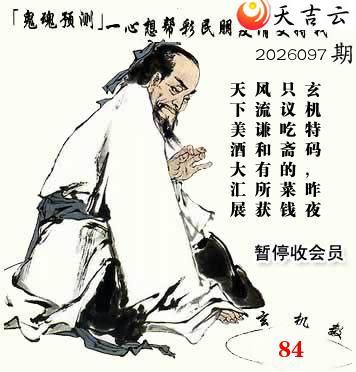 「鬼魂预测」一心想帮彩民朋友
天吉云
2026097期
玄机特码，昨夜
只议吃斋的菜钱
风流谦和有所获
天下美酒大汇展
暂停收会员
玄机数
84